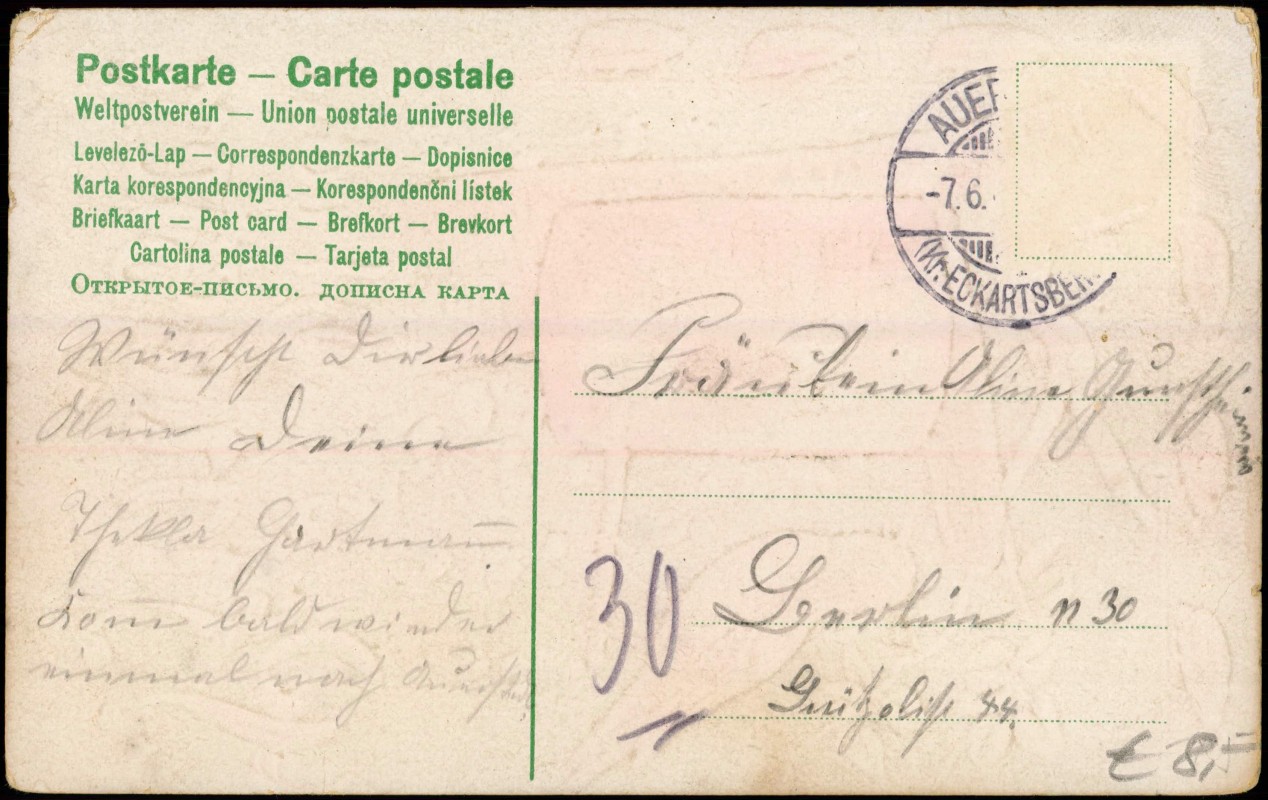 Postkarte — Carte postale
Weltpostverein — Union postale universelle
Levelező-Lap — Correspondenzkarte — Dopisnice
Karta korespondencyjna — Korespondenčni lístek
Briefkaart — Post card — Brefkort — Brevkort
Cartolina postale — Tarjeta postal
Открытое-письмо. дописна карта
Wünscht Dir liebe
Aline Deine
Thekla Hartmann
Komm bald wieder
einmal nach
AUER
-7.6.
(Kr. ECKARTSBER
Fräulein Aline
Berlin n 30
44.
30
€ 8,-